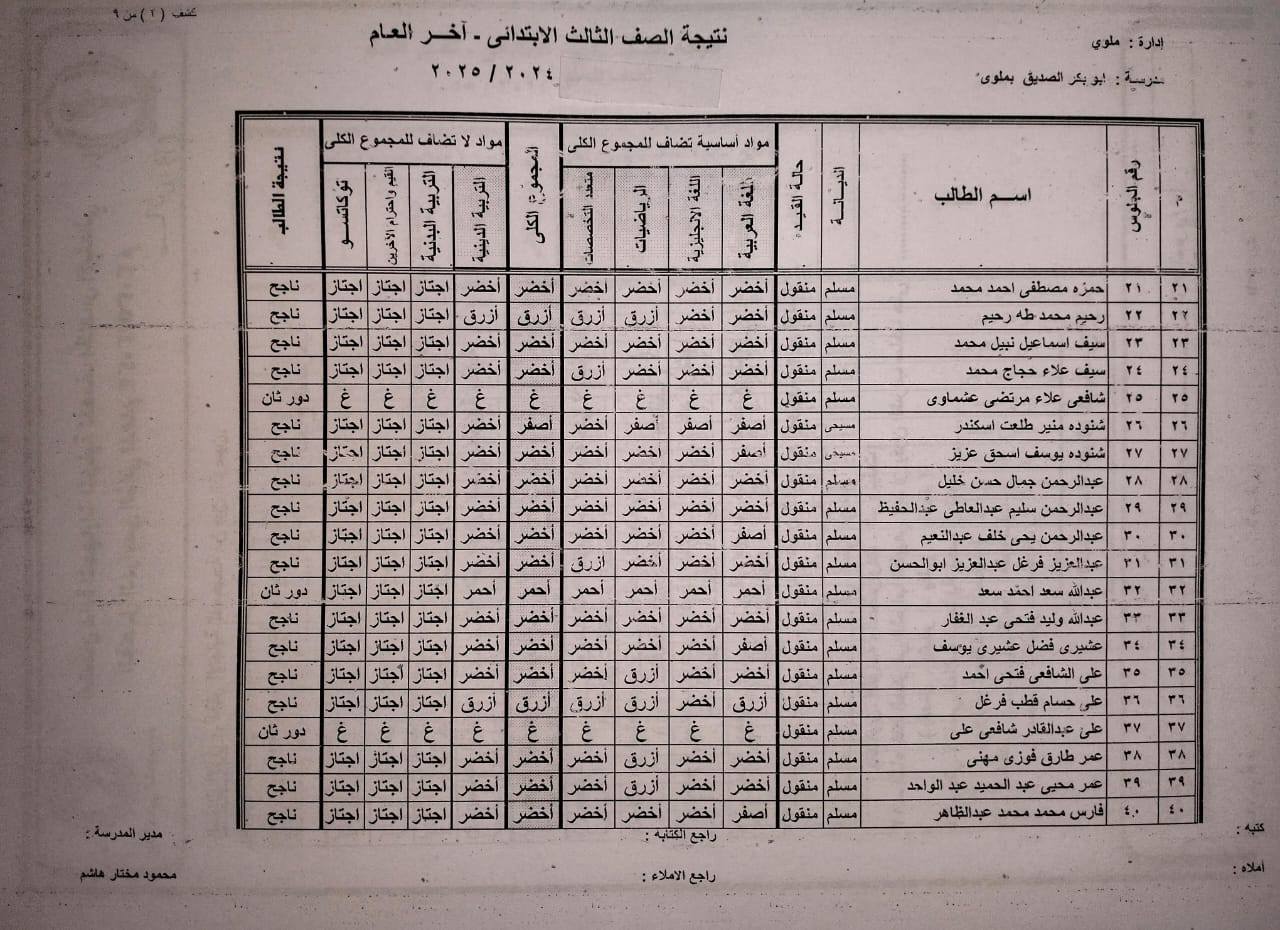 كشف (٢) من ٩
نتيجة الصف الثالث الابتدائى - آخر العام
٢٠٢٤ / ٢٠٢٥
إدارة : ملوي
مدرسة : ابو بكر الصديق بملوى
م رقم الجلوس اسم الطالب الديانة حالة القيد مواد أساسية تضاف للمجموع الكلى المجموع الكلى مواد لا تضاف للمجموع الكلى نتيجة الطالب
اللغة العربية اللغة الانجليزية الرياضيات متعدد التخصصات التربية الدينية التربية البدنية القيم واحترام الآخرين توكاتسو
٢١ ٢١ حمزه مصطفى احمد محمد مسلم منقول أخضر أخضر أخضر أخضر أخضر أخضر اجتاز اجتاز اجتاز ناجح
٢٢ ٢٢ رحيم محمد طه رحيم مسلم منقول أخضر أخضر أزرق أزرق أزرق أزرق اجتاز اجتاز اجتاز ناجح
٢٣ ٢٣ سيف اسماعيل نبيل محمد مسلم منقول أخضر أخضر أخضر أخضر أخضر أخضر اجتاز اجتاز اجتاز ناجح
٢٤ ٢٤ سيف علاء حجاج محمد مسلم منقول أخضر أخضر أخضر أزرق أخضر أخضر اجتاز اجتاز اجتاز ناجح
٢٥ ٢٥ شافعى علاء مرتضى عشماوى مسلم منقول غ غ غ غ غ غ غ غ غ دور ثان
٢٦ ٢٦ شنوده منير طلعت اسكندر مسيحى منقول أصفر أصفر أصفر أخضر أصفر أخضر اجتاز اجتاز اجتاز ناجح
٢٧ ٢٧ شنوده يوسف اسحق عزيز مسيحى منقول أصفر أخضر أخضر أخضر أخضر أخضر اجتاز اجتاز اجتاز ناجح
٢٨ ٢٨ عبدالرحمن جمال حسن خليل مسلم منقول أخضر أخضر أخضر أخضر أخضر أخضر اجتاز اجتاز اجتاز ناجح
٢٩ ٢٩ عبدالرحمن سليم عبدالعاطى عبدالحفيظ مسلم منقول أخضر أخضر أخضر أخضر أخضر أخضر اجتاز اجتاز اجتاز ناجح
٣٠ ٣٠ عبدالرحمن يحى خلف عبدالنعيم مسلم منقول أصفر أخضر أخضر أخضر أخضر أخضر اجتاز اجتاز اجتاز ناجح
٣١ ٣١ عبدالعزيز فرغل عبدالعزيز ابوالحسن مسلم منقول أخضر أخضر أخضر أزرق أخضر أخضر اجتاز اجتاز اجتاز ناجح
٣٢ ٣٢ عبدالله سعد احمد سعد مسلم منقول أحمر أحمر أحمر أحمر أحمر أحمر اجتاز اجتاز اجتاز دور ثان
٣٣ ٣٣ عبدالله وليد فتحى عبد الغفار مسلم منقول أخضر أخضر أخضر أخضر أخضر أخضر اجتاز اجتاز اجتاز ناجح
٣٤ ٣٤ عشيرى فضل عشيرى يوسف مسلم منقول أصفر أخضر أخضر أخضر أخضر أخضر اجتاز اجتاز اجتاز ناجح
٣٥ ٣٥ على الشافعى فتحى احمد مسلم منقول أخضر أخضر أزرق أخضر أخضر أخضر اجتاز اجتاز اجتاز ناجح
٣٦ ٣٦ على حسام قطب فرغل مسلم منقول أزرق أخضر أزرق أزرق أزرق أزرق اجتاز اجتاز اجتاز ناجح
٣٧ ٣٧ على عبدالقادر شافعى على مسلم منقول غ غ غ غ غ غ غ غ غ دور ثان
٣٨ ٣٨ عمر طارق فوزى مهنى مسلم منقول أخضر أخضر أزرق أخضر أخضر أخضر اجتاز اجتاز اجتاز ناجح
٣٩ ٣٩ عمر محيى عبد الحميد عبد الواحد مسلم منقول أخضر أخضر أزرق أخضر أخضر أخضر اجتاز اجتاز اجتاز ناجح
٤٠ ٤٠ فارس محمد محمد عبدالظاهر مسلم منقول أصفر أخضر أخضر أخضر أخضر أخضر اجتاز اجتاز اجتاز ناجح
كتبه : راجع الكتابه : مدير المدرسة :
أملاه : راجع الاملاء : محمود مختار هاشم